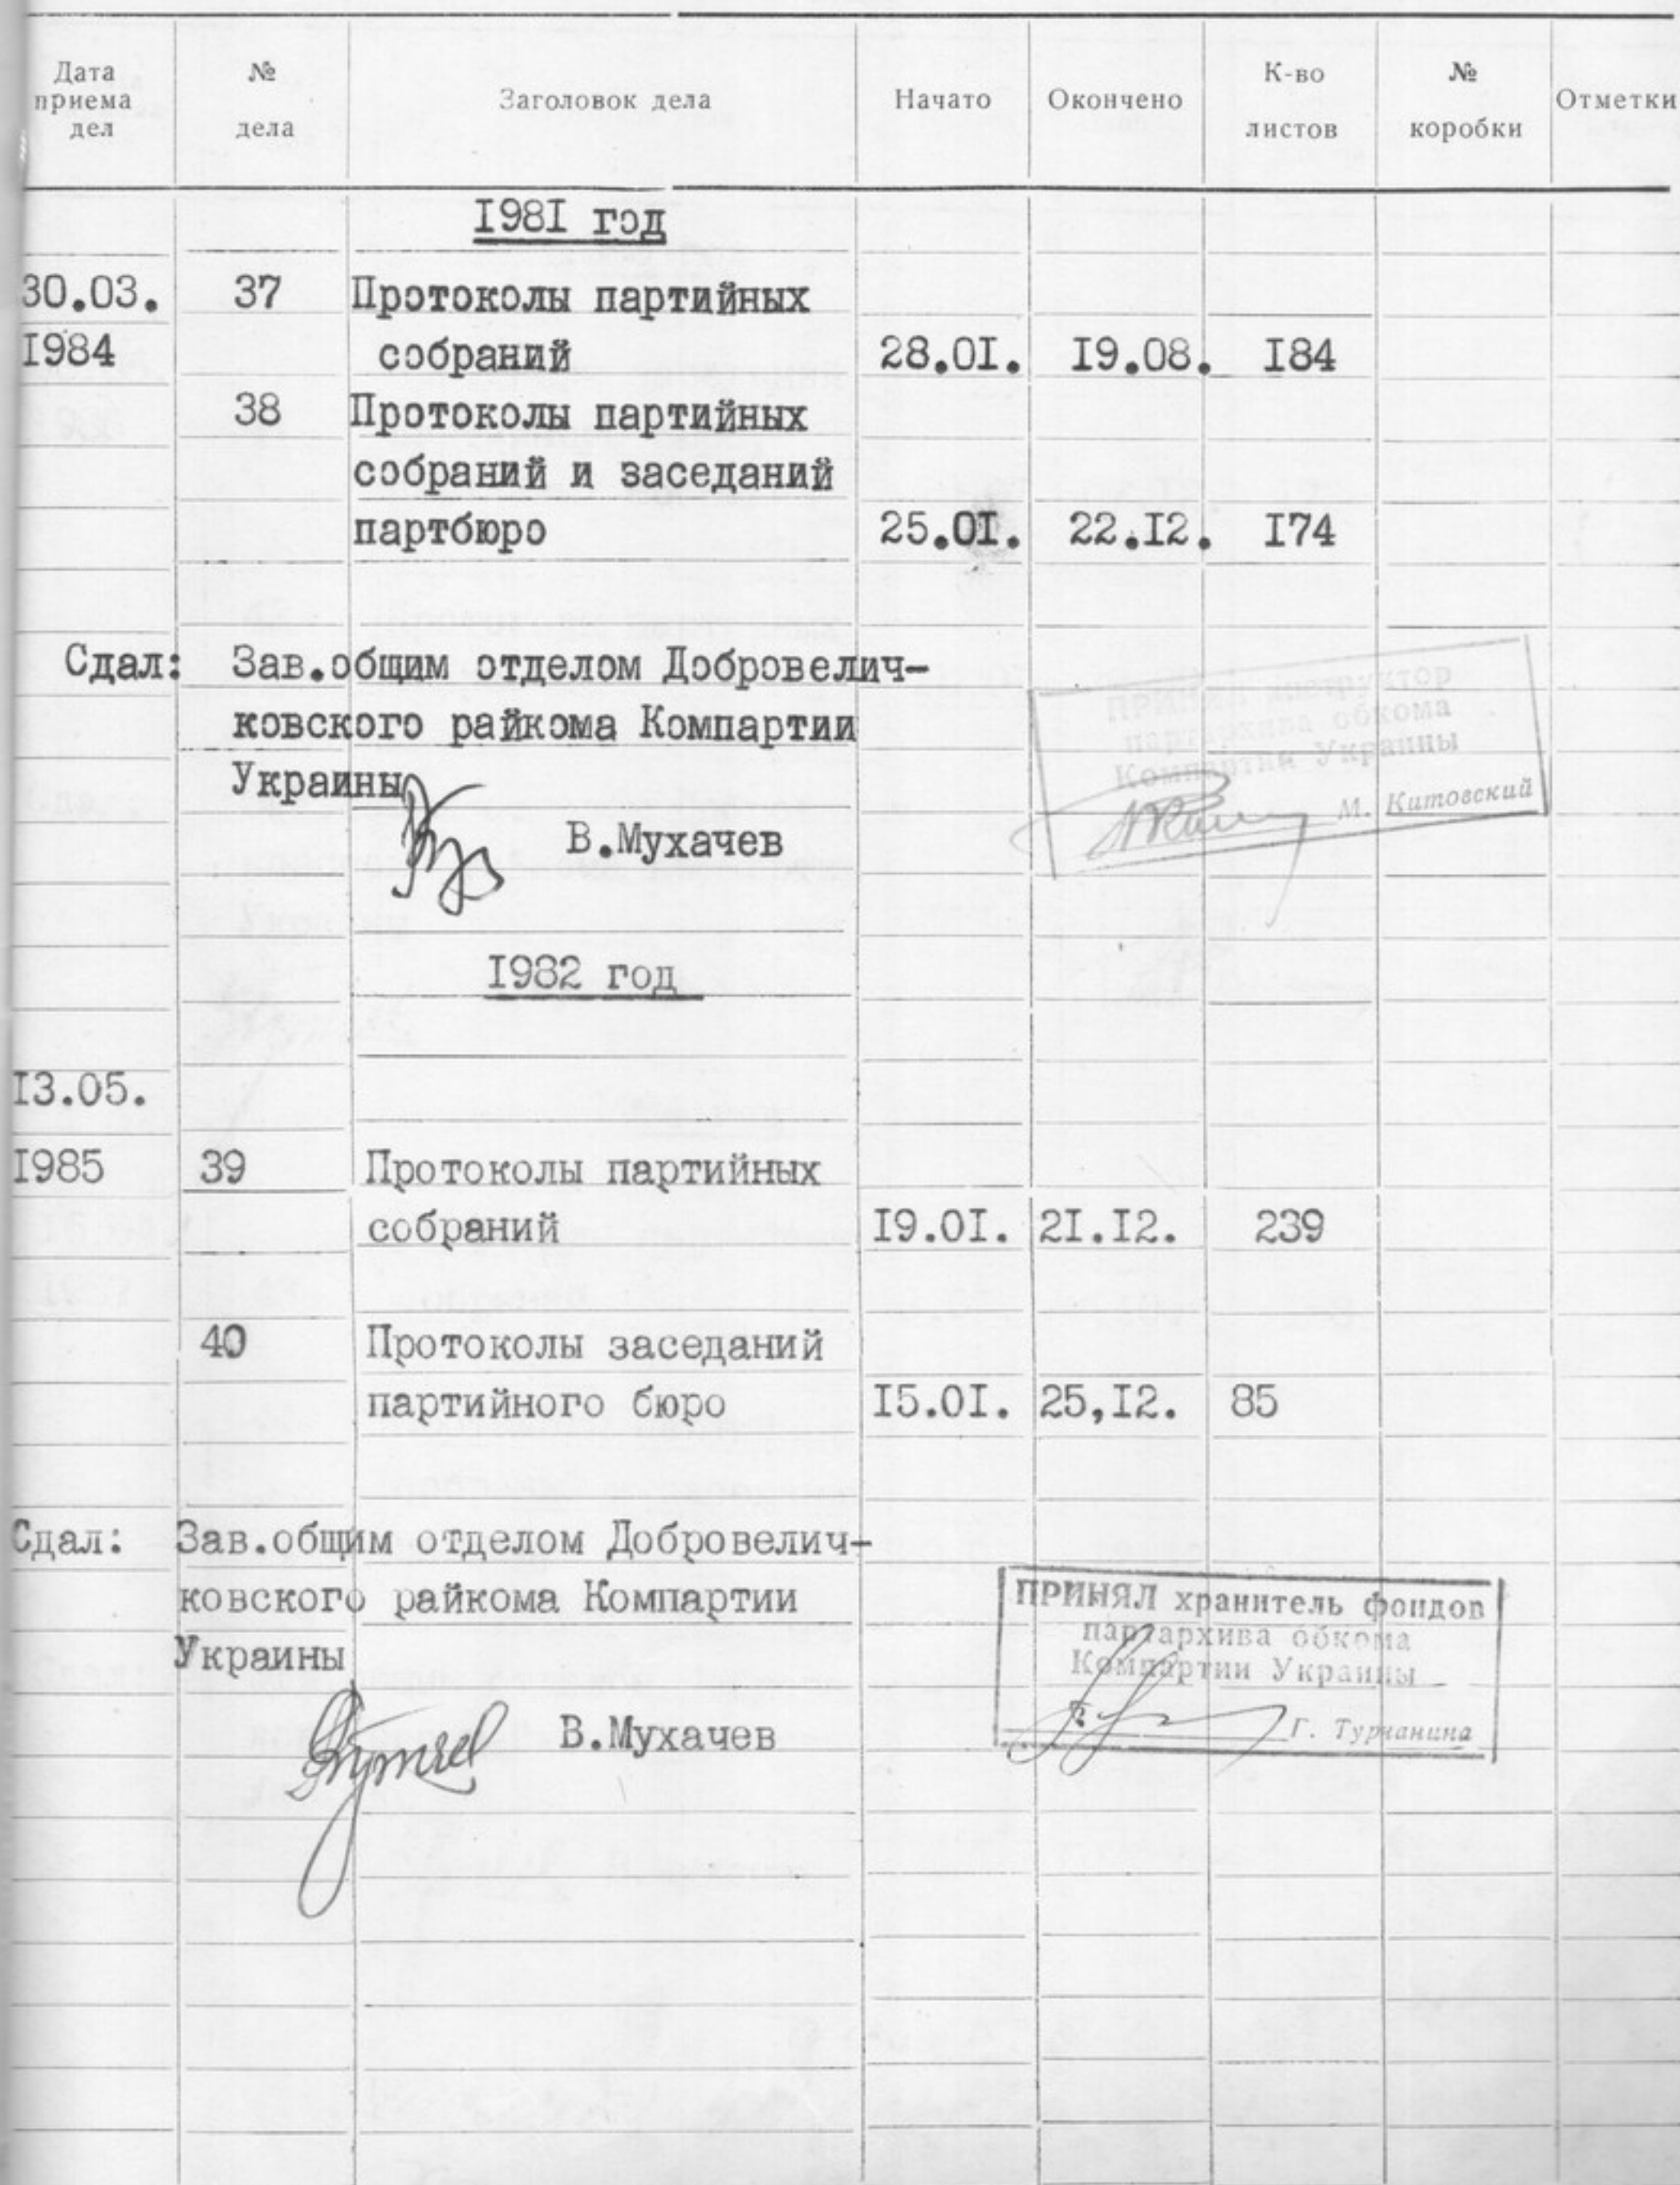 Дата приема дел № дела Заголовок дела Начато Окончено К-во листов № коробки Отметки
1981 год
30.03. 37 Протоколы партийных
1984 собраний 28.01. 19.08. 184
38 Протоколы партийных
собраний и заседаний
партбюро 25.01. 22.12. 174
Сдал: Зав.общим отделом Добровелич-
ковского райкома Компартии
Украины
В.Мухачев
ПРИНЯЛ инструктор
партархива обкома
Компартии Украины
М. Китовский
1982 год
13.05.
1985 39 Протоколы партийных
собраний 19.01. 21.12. 239
40 Протоколы заседаний
партийного бюро 15.01. 25,12. 85
Сдал: Зав.общим отделом Добровелич-
ковского райкома Компартии
Украины
В.Мухачев
ПРИНЯЛ хранитель фондов
партархива обкома
Компартии Украины
Г. Турчанина